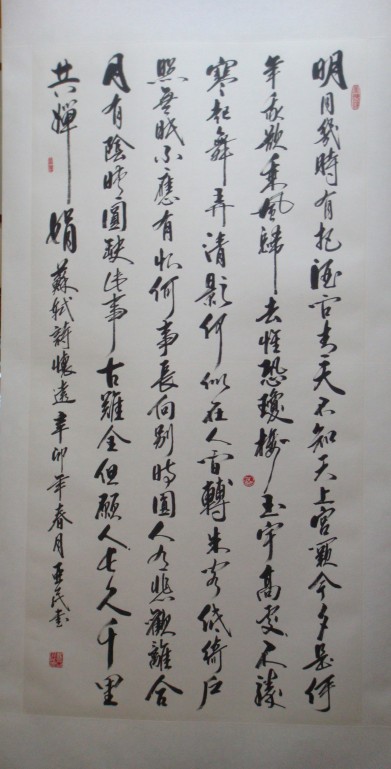 明月幾時有把酒问青天不知天上宫闕今夕是何
年我欲乘風歸去惟恐瓊楼玉宇高處不勝
寒起舞弄清影何似在人间轉朱阁低绮户
照無眠不應有恨何事長向别時圆人有悲歡離合
月有陰晴圆缺此事古難全但願人长久千里
共嬋娟 蘇軾詩懷遠辛卯年春月亚民书